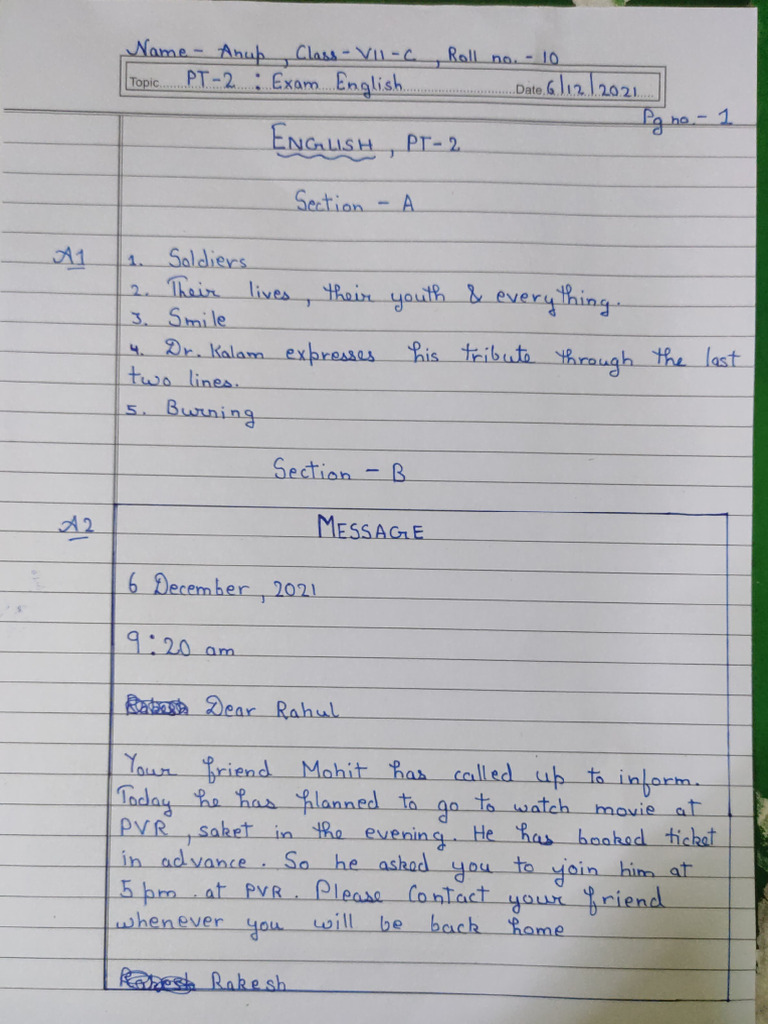 Name - Anup , Class - VII - C , Roll no. - 10
Topic PT-2 : Exam English Date 6/12/2021
Pg no. - 1
ENGLISH , PT-2
Section - A
A1 1. Soldiers
2. Their lives , their youth & everything.
3. Smile
4. Dr. Kalam expresses his tribute through the last
two lines.
5. Burning
Section - B
A2 MESSAGE
6 December , 2021
9:20 am
Dear Rahul
Your friend Mohit has called up to inform.
Today he has planned to go to watch movie at
PVR , saket in the evening. He has booked ticket
in advance. So he asked you to join him at
5 pm . at PVR. Please Contact your friend
whenever you will be back home
Rakesh